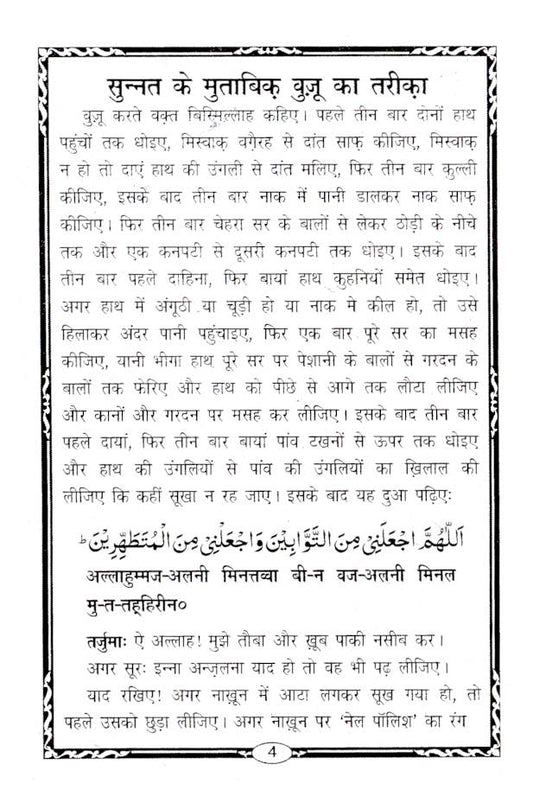 सुन्नत के मुताबिक़ वुज़ू का तरीक़ा
वुज़ू करते वक़्त बिस्मिल्लाह कहिए। पहले तीन बार दोनों हाथ
पहुंचों तक धोइए, मिस्वाक़ वग़ैरह से दांत साफ़ कीजिए, मिस्वाक़
न हो तो दाएं हाथ की उंगली से दांत मलिए, फिर तीन बार कुल्ली
कीजिए, इसके बाद तीन बार नाक में पानी डालकर नाक साफ़
कीजिए। फिर तीन बार चेहरा सर के बालों से लेकर ठोड़ी के नीचे
तक और एक कनपटी से दूसरी कनपटी तक धोइए। इसके बाद
तीन बार पहले दाहिना, फिर बायां हाथ कुहनियों समेत धोइए।
अगर हाथ में अंगूठी या चूड़ी हो या नाक मे कील हो, तो उसे
हिलाकर अंदर पानी पहुंचाइए, फिर एक बार पूरे सर का मसह
कीजिए, यानी भीगा हाथ पूरे सर पर पेशानी के बालों से गरदन के
बालों तक फेरिए और हाथ को पीछे से आगे तक लौटा लीजिए
और कानों और गरदन पर मसह कर लीजिए। इसके बाद तीन बार
पहले दायां, फिर तीन बार बायां पांव टखनों से ऊपर तक धोइए
और हाथ की उंगलियों से पांव की उंगलियों का ख़िलाल की
लीजिए कि कहीं सूखा न रह जाए। इसके बाद यह दुआ पढ़िएः
اَللّٰهُمَّ اجْعَلْنِيْ مِنَ التَّوَّابِيْنَ وَاجْعَلْنِيْ مِنَ الْمُتَطَهِّرِيْنَ ط
अल्लाहुम्मज-अलनी मिनत्तव्वा बी-न वज-अलनी मिनल
मु-त-तह्हिरीन०
तर्जुमाः ऐ अल्लाह! मुझे तौबा और ख़ूब पाकी नसीब कर।
अगर सूरः इन्ना अन्ज़लना याद हो तो वह भी पढ़ लीजिए।
याद रखिए! अगर नाख़ून में आटा लगकर सूख गया हो, तो
पहले उसको छुड़ा लीजिए। अगर नाख़ून पर ‘नेल पॉलिश’ का रंग
4